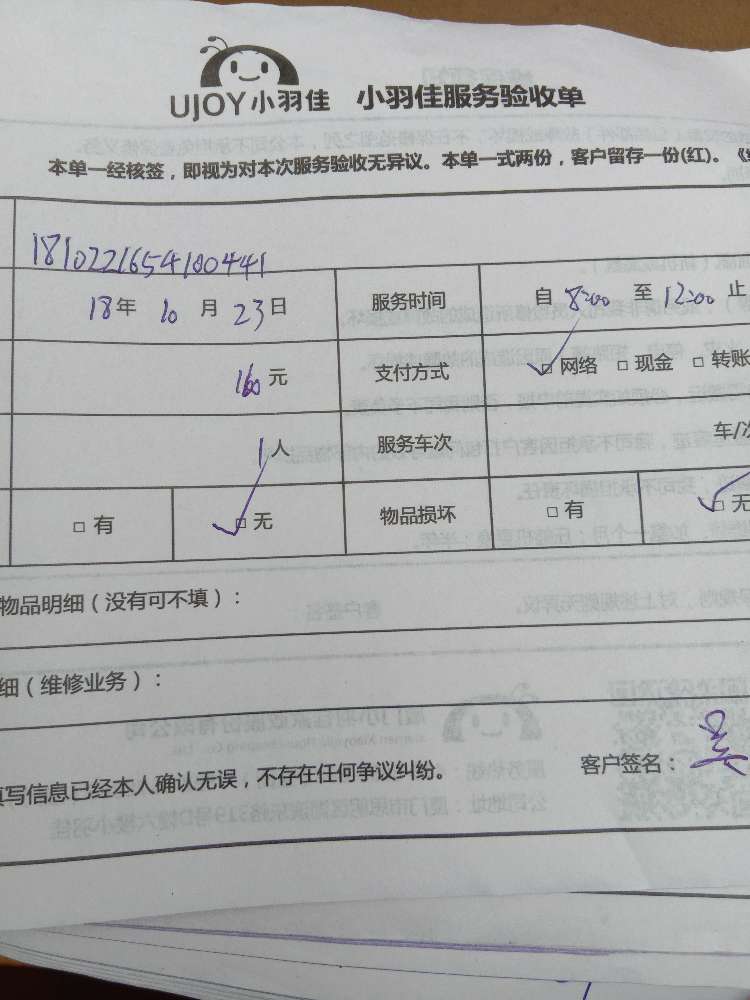 UJOY小羽佳 小羽佳服务验收单
本单一经核签，即视为对本次服务验收无异议。本单一式两份，客户留存一份(红)。《
1810221654100441
18年 10 月 23 日 服务时间 自 8:00 至 12:00 止
160 元 支付方式 □ 网络 □ 现金 □ 转账
1 人 服务车次 车/次
□ 有 □ 无 物品损坏 □ 有 □ 无
物品明细（没有可不填）：
细（维修业务）：
填写信息已经本人确认无误，不存在任何争议纠纷。 客户签名：